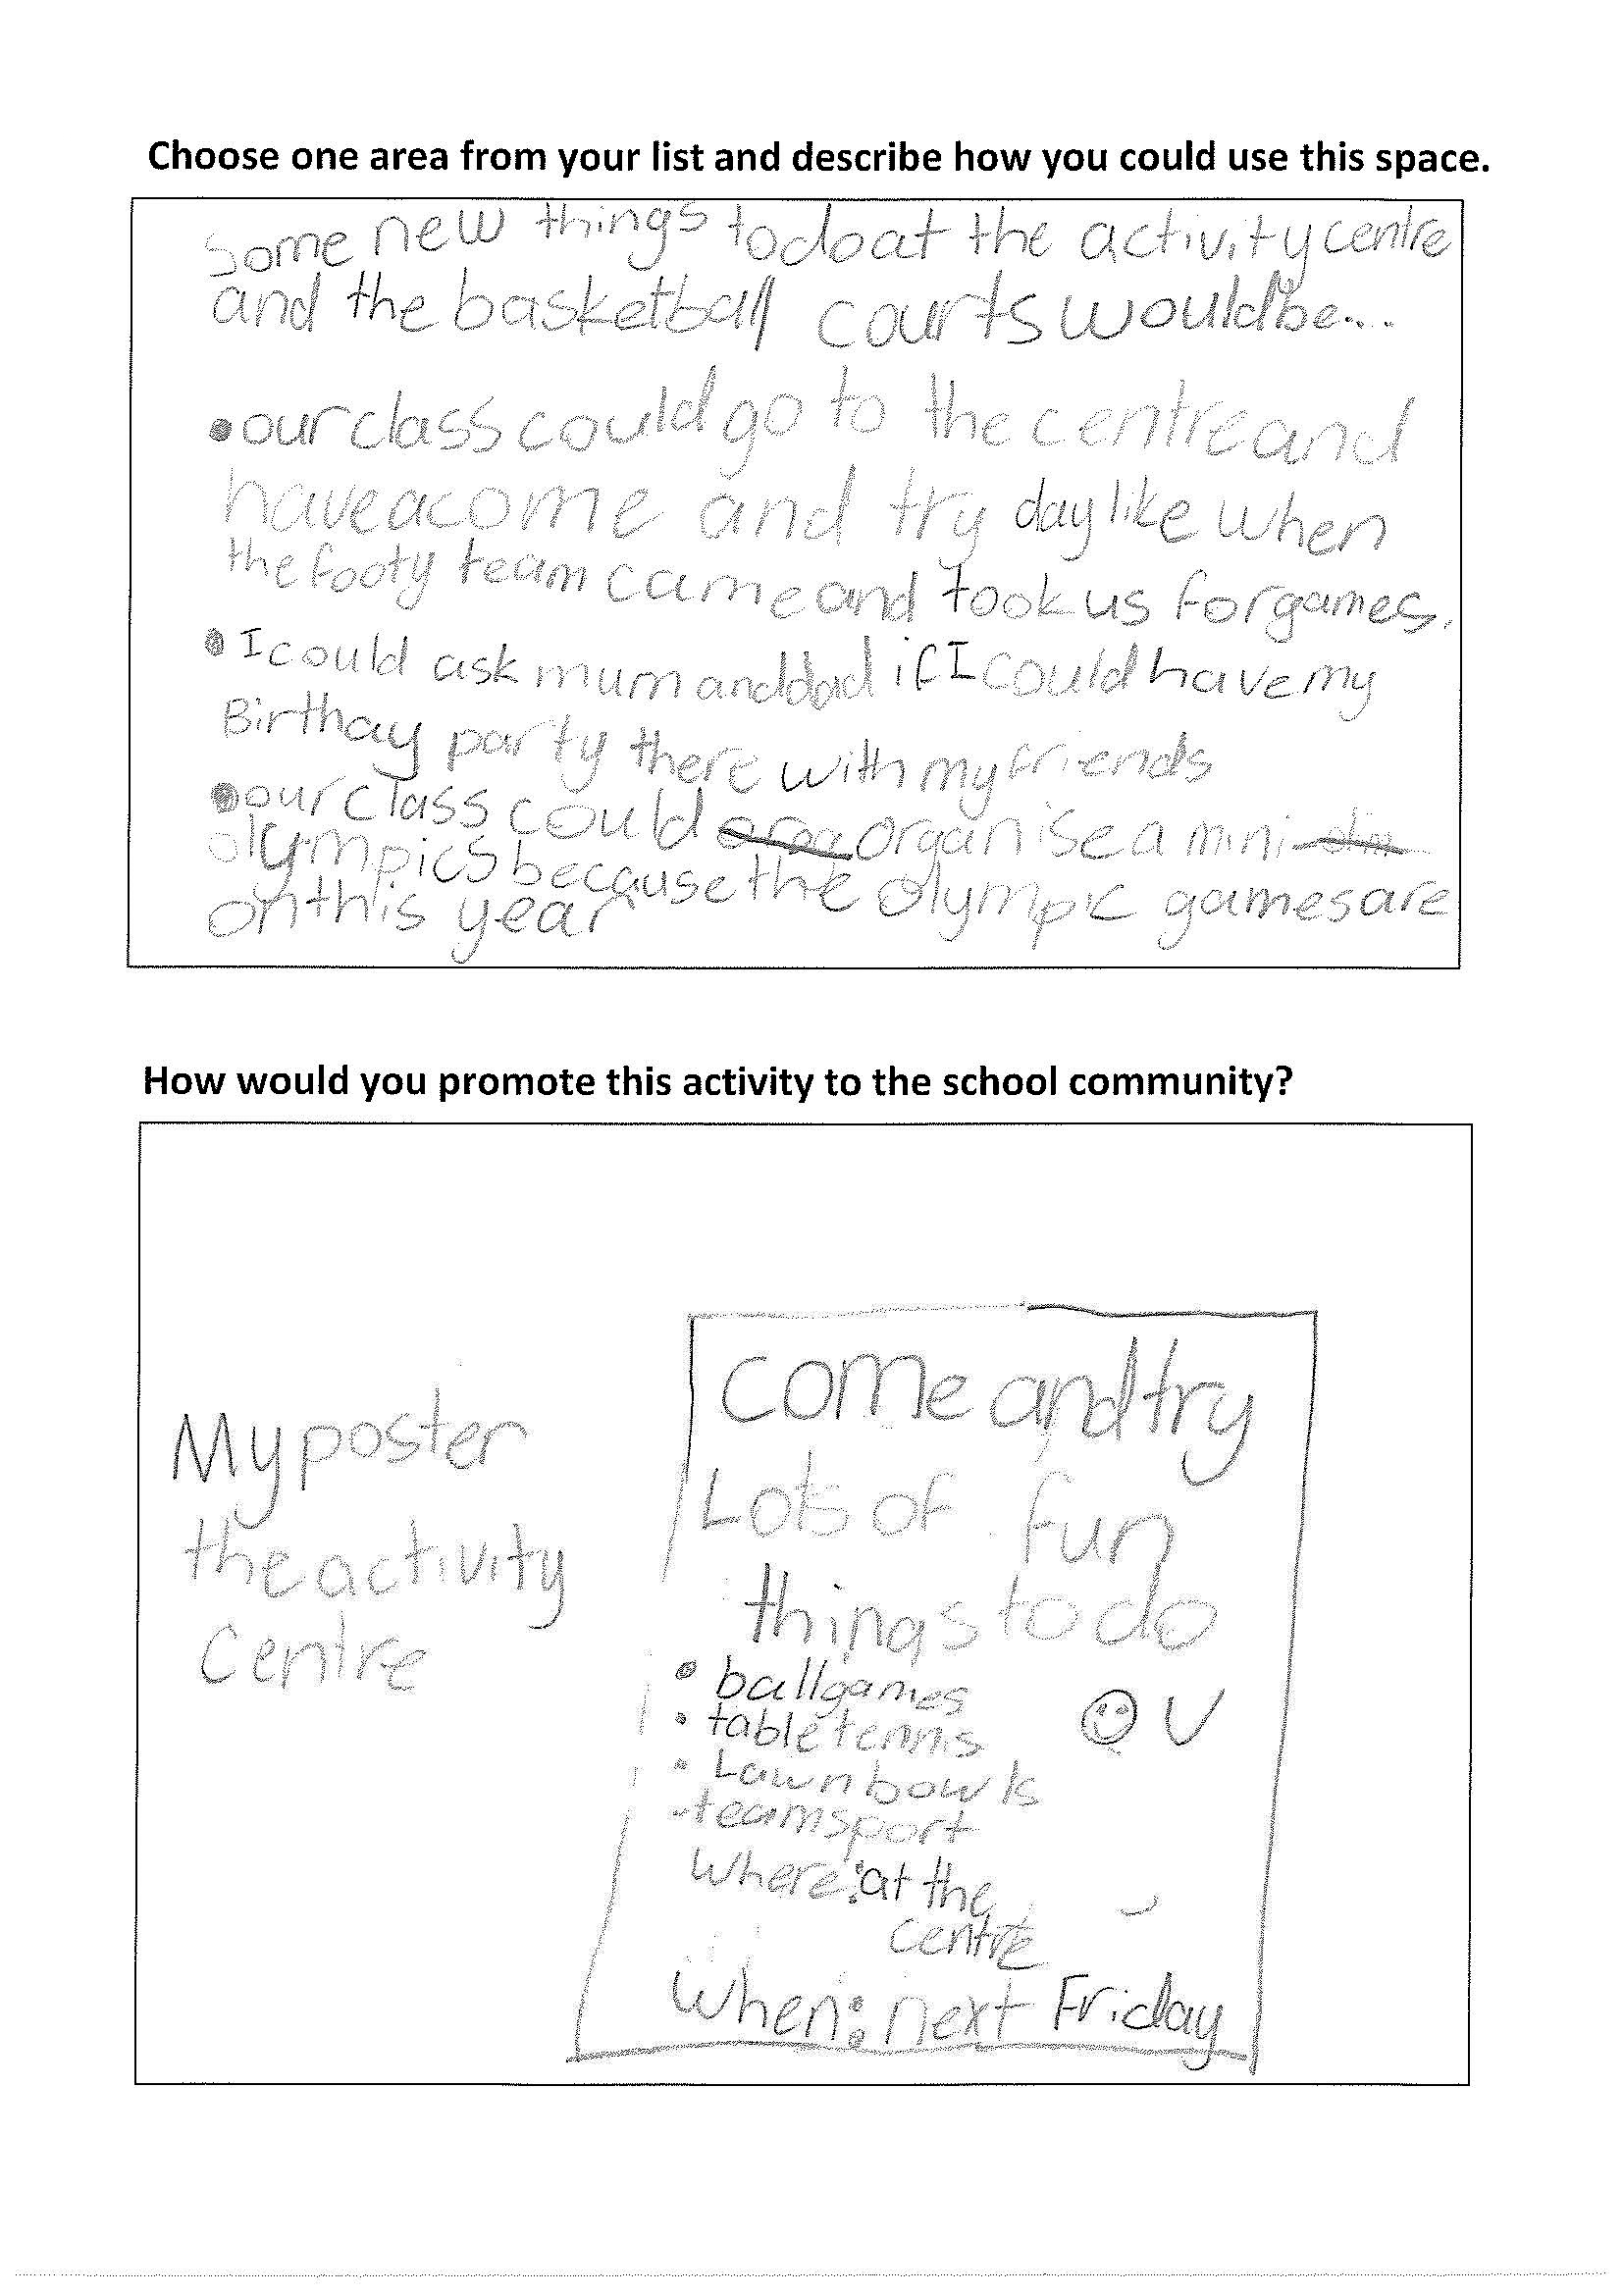 Choose one area from your list and describe how you could use this space.
Some new things to do at the activity centre
and the basketball courts would be...
• our class could go to the centre and
have a come and try day like when
the footy team came and took us for games.
• I could ask mum and dad if I could have my
Birthay party there with my friends
• our class could organise a mini
olympics because the olympic games are
on this year
How would you promote this activity to the school community?
My poster
the activity
Centre
Come and try
Lots of fun
things to do
• ball games
• table tennis
• Lawn bowls
- team sport
Where: at the
centre
When: next Friday